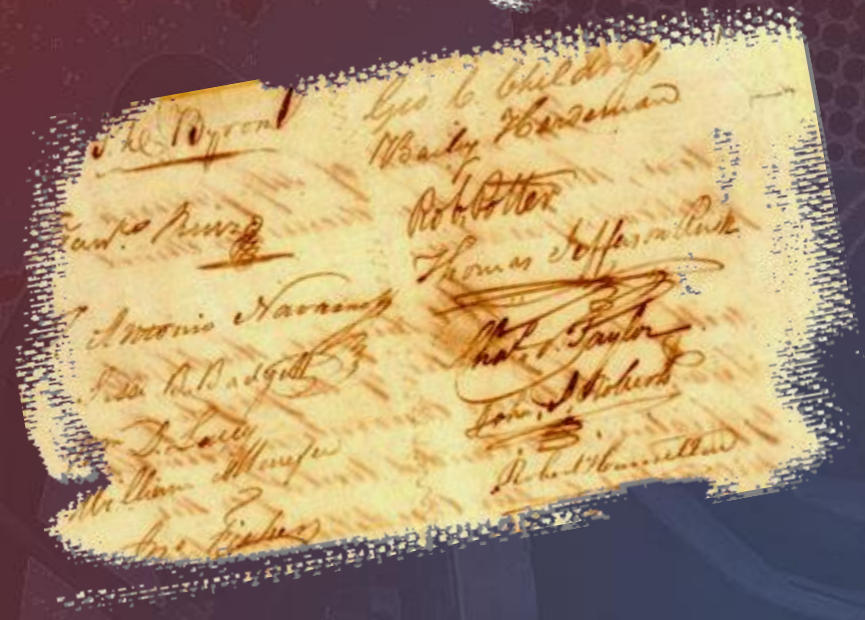 Byrom
Ruiz
Antonio Navarro
Jesse B. Badgett
D. Lacey
William Menefee
Jno Fisher
Geo C Childress
Baily Hardeman
Rob. Potter
Thomas Jefferson Rusk
Chas. S. Taylor
John S. Roberts
Robert Hamilton